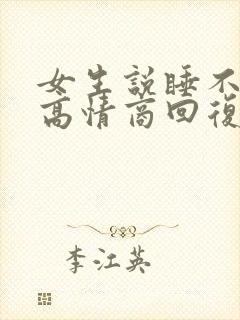 女生説睡不
高情商回復
李江英